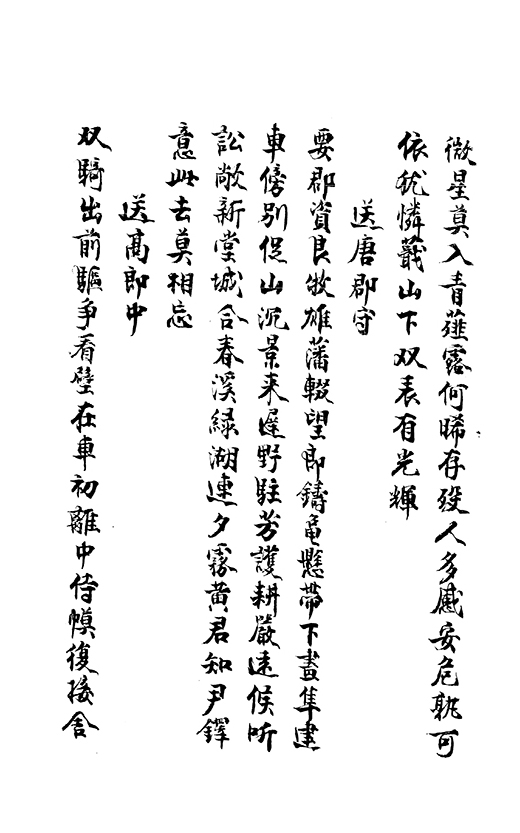 微星莫入青薤露何晞存殁人多慼安危孰可
依犹憐蕺山下双表有光輝
送唐郡守
要郡資良牧雄藩輟望郎鑄龜懸帶下畫隼建
車傍別促山沉景来遲野駐芳護耕嚴遠候听
訟敞新堂城合春溪緑湖連夕霧黄君知尹鐸
意此去莫相忘
送高郎中
双騎出前驅争看璧在車初離中侍幙復接舍